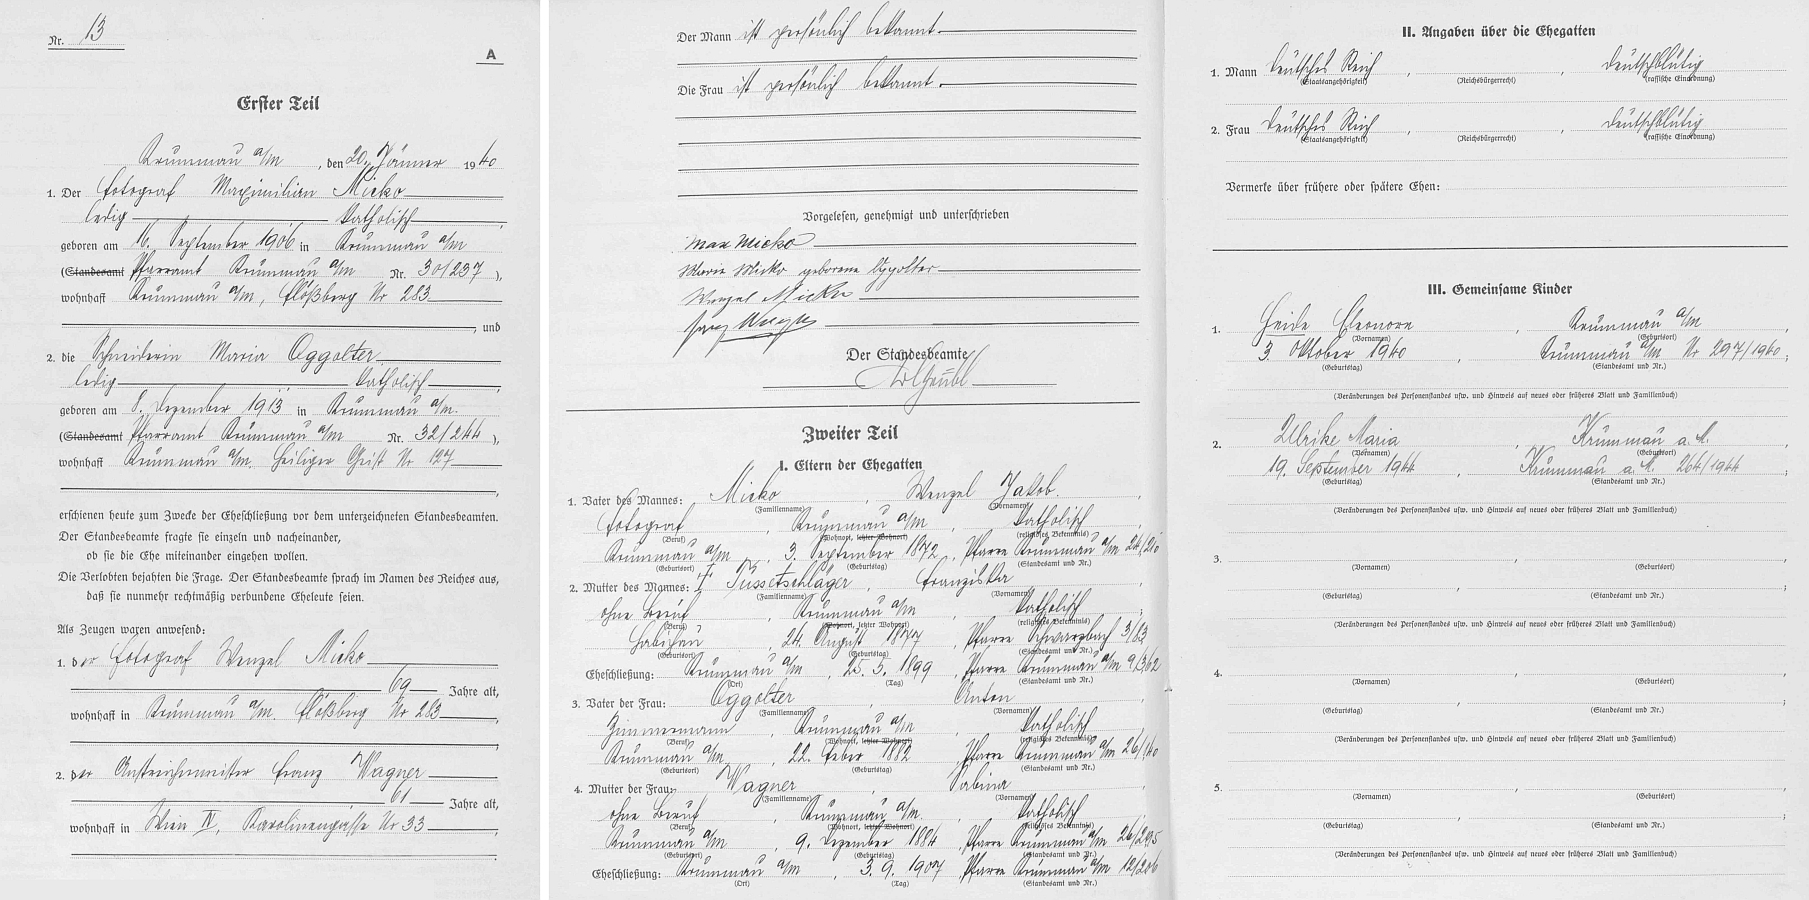 Nr. 13
A
Erster Teil
Krummau a/M , den 20. Jänner 1940
1. Der Fotograf Maximilian Micko
ledig katholisch ,
geboren am 16. September 1906 in Krummau a/M
(Standesamt Pfarramt Krummau a/M Nr. 30/237 ),
wohnhaft Krummau a/M, Flößberg Nr 283
, und
2. die Schneiderin Maria Oggolter
ledig katholisch ,
geboren am 8. Dezember 1913 in Krummau a/M.
(Standesamt Pfarramt Krummau a/M Nr. 32/244 ),
wohnhaft Krummau a/M. Heiliger Geist Nr 127
,
erschienen heute zum Zwecke der Eheschließung vor dem unterzeichneten Standesbeamten.
Der Standesbeamte fragte sie einzeln und nacheinander,
ob sie die Ehe miteinander eingehen wollen.
Die Verlobten bejahten die Frage. Der Standesbeamte sprach im Namen des Reiches aus,
daß sie nunmehr rechtmäßig verbundene Eheleute seien.
Als Zeugen waren anwesend:
1. der Fotograf Wenzel Micko
69 Jahre alt,
wohnhaft in Krummau a/M. Flößberg Nr 283
,
2. der Anstreichermeister Franz Wagner
61 Jahre alt,
wohnhaft in Wien IV, Karolinengasse Nr 33
Der Mann ist persönlich bekannt.
Die Frau ist persönlich bekannt.
Vorgelesen, genehmigt und unterschrieben
Max Micko
Marie Micko geborene Oggolter
Wenzel Micko
Franz Wagner
Der Standesbeamte
Zweiter Teil
I. Eltern der Ehegatten
1. Vater des Mannes: Micko , Wenzel Jakob.
(Familienname) (Vornamen)
Fotograf , Krummau a/M , katholisch
(Beruf) (Wohnort, letzter Wohnort) (religiöses Bekenntnis)
Krummau a/M , 3. September 1872 , Pfarre Krummau a/M 24/210
(Geburtsort) (Geburtstag) (Standesamt und Nr.)
2. Mutter des Mannes: † Tussetschläger , Franziska
(Familienname) (Vornamen)
ohne Beruf , Krummau a/M , katholisch ;
(Beruf) (Wohnort, letzter Wohnort) (religiöses Bekenntnis)
Habichau , 24. August 1877 , Pfarre Schwarzbach 3/83
(Geburtsort) (Geburtstag) (Standesamt und Nr.)
Eheschließung: Krummau a/M , 25. 5. 1899 , Pfarre Krummau a/M 9/362
(Ort) (Tag) (Standesamt und Nr.)
3. Vater der Frau: Oggolter , Anton
(Familienname) (Vornamen)
Zimmermann , Krummau a/M , katholisch
(Beruf) (Wohnort, letzter Wohnort) (religiöses Bekenntnis)
Krummau a/M , 22. Feber 1882 , Pfarre Krummau a/M 26/40
(Geburtsort) (Geburtstag) (Standesamt und Nr.)
4. Mutter der Frau: Wagner , Sabina
(Familienname) (Vornamen)
ohne Beruf , Krummau a/M. , katholisch
(Beruf) (Wohnort, letzter Wohnort) (religiöses Bekenntnis)
Krummau a/M , 9. Dezember 1884 , Pfarre Krummau a/M 26/295
(Geburtsort) (Geburtstag) (Standesamt und Nr.)
Eheschließung: Krummau a/M , 3. 9. 1907 , Pfarre Krummau a/M 12/206
(Ort) (Tag) (Standesamt und Nr.)
II. Angaben über die Ehegatten
1. Mann Deutsches Reich , , deutschblütig
(Staatsangehörigkeit) (Reichsbürgerrecht) (rassische Einordnung)
2. Frau Deutsches Reich , , deutschblütig
(Staatsangehörigkeit) (Reichsbürgerrecht) (rassische Einordnung)
Vermerke über frühere oder spätere Ehen:
III. Gemeinsame Kinder
1. Heide Eleonore , Krummau a/M ,
(Vornamen) (Geburtsort)
3. Oktober 1940 , Krummau a/M Nr 297/1940 ;
(Geburtstag) (Standesamt und Nr.)
(Veränderungen des Personenstandes usw. und Hinweis auf neues oder früheres Blatt und Familienbuch)
2. Ulrike Maria , Krummau a. M. ,
(Vornamen) (Geburtsort)
19. September 1944 , Krummau a. M. 264/1944 ;
(Geburtstag) (Standesamt und Nr.)
(Veränderungen des Personenstandes usw. und Hinweis auf neues oder früheres Blatt und Familienbuch)
3. , ,
(Vornamen) (Geburtsort)
, ;
(Geburtstag) (Standesamt und Nr.)
(Veränderungen des Personenstandes usw. und Hinweis auf neues oder früheres Blatt und Familienbuch)
4. , ,
(Vornamen) (Geburtsort)
, ;
(Geburtstag) (Standesamt und Nr.)
(Veränderungen des Personenstandes usw. und Hinweis auf neues oder früheres Blatt und Familienbuch)
5. , ,
(Vornamen) (Geburtsort)
, ;
(Geburtstag) (Standesamt und Nr.)
(Veränderungen des Personenstandes usw. und Hinweis auf neues oder früheres Blatt und Familienbuch)